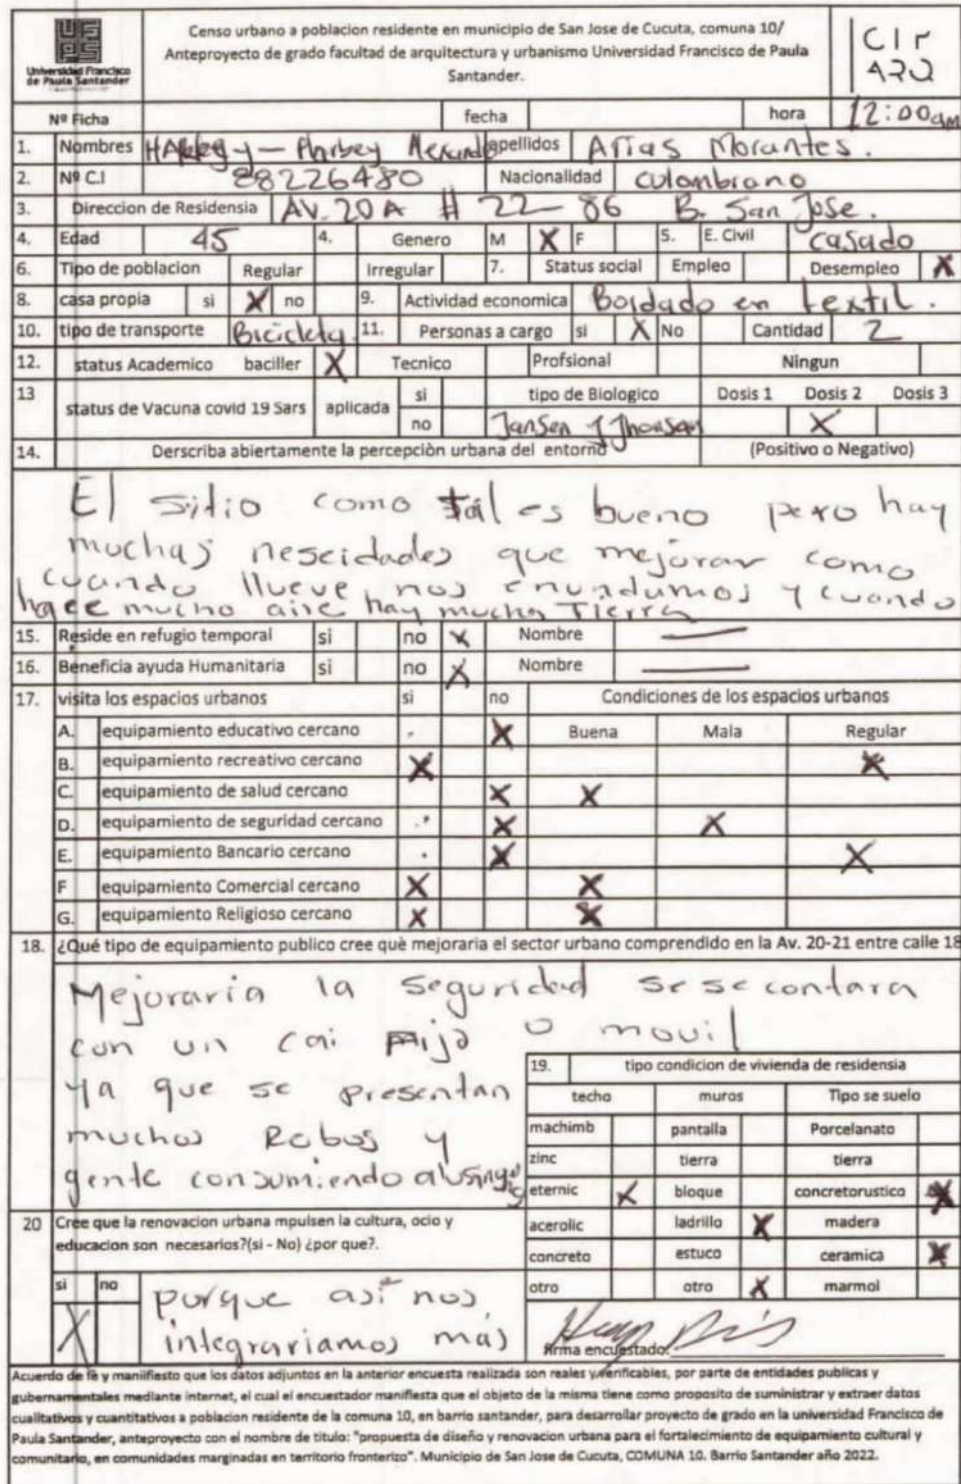 Universidad Francisco
de Paula Santander
Censo urbano a poblacion residente en municipio de San Jose de Cucuta, comuna 10/
Anteproyecto de grado facultad de arquitectura y urbanismo Universidad Francisco de Paula
Santander.
CIr
ARQ
Nº Ficha fecha hora 12:00am
1. Nombres apellidos Arias Morantes.
2. Nº C.I 88226480 Nacionalidad culombiano
3. Direccion de Residensia AV. 20A # 22-86 B. San Jose.
4. Edad 45 4. Genero M X F 5. E. Civil casado
6. Tipo de poblacion Regular Irregular 7. Status social Empleo Desempleo X
8. casa propia si X no 9. Actividad economica Bordado en textil.
10. tipo de transporte Bicicleta. 11. Personas a cargo si X No Cantidad 2
12. status Academico baciller X Tecnico Profsional Ningun
13 status de Vacuna covid 19 Sars aplicada si tipo de Biologico Dosis 1 Dosis 2 Dosis 3
no Jansen y Jhonson X
14. Derscriba abiertamente la percepciòn urbana del entorno (Positivo o Negativo)
El sitio como tal es bueno pero hay
muchas nescidades que mejorar como
cuando llueve nos enundumos y cuando
hace mucho aire hay mucha Tierra
15. Reside en refugio temporal si no X Nombre
16. Beneficia ayuda Humanitaria si no X Nombre
17. visita los espacios urbanos si no Condiciones de los espacios urbanos
A. equipamiento educativo cercano X Buena Mala Regular
B. equipamiento recreativo cercano X X
C. equipamiento de salud cercano X X
D. equipamiento de seguridad cercano X X
E. equipamiento Bancario cercano X X
F equipamiento Comercial cercano X X
G. equipamiento Religioso cercano X X
18. ¿Qué tipo de equipamiento publico cree què mejoraria el sector urbano comprendido en la Av. 20-21 entre calle 18
Mejoraria la seguridad se se contara
con un cai Fijo o movil
ya que se presentan
muchos Robos y
gente consumiendo
19. tipo condicion de vivienda de residensia
techo muros Tipo se suelo
machimb pantalla Porcelanato
zinc tierra tierra
eternic X bloque concretorustico X
acerolic ladrillo X madera
concreto estuco ceramica X
otro otro X marmol
20 Cree que la renovacion urbana mpulsen la cultura, ocio y
educacion son necesarios?(si - No) ¿por que?.
si no
X porque asi nos
integrariamos más
firma encuestado:
Acuerdo de fè y maniifiesto que los datos adjuntos en la anterior encuesta realizada son reales y verificables, por parte de entidades publicas y
gubernamentales mediante internet, el cual el encuestador manifiesta que el objeto de la misma tiene como proposito de suministrar y extraer datos
cualitativos y cuantitativos a poblacion residente de la comuna 10, en barrio santander, para desarrollar proyecto de grado en la universidad Francisco de
Paula Santander, anteproyecto con el nombre de titulo: "propuesta de diseño y renovacion urbana para el fortalecimiento de equipamiento cultural y
comunitario, en comunidades marginadas en territorio fronterizo". Municipio de San Jose de Cucuta, COMUNA 10. Barrio Santander año 2022.